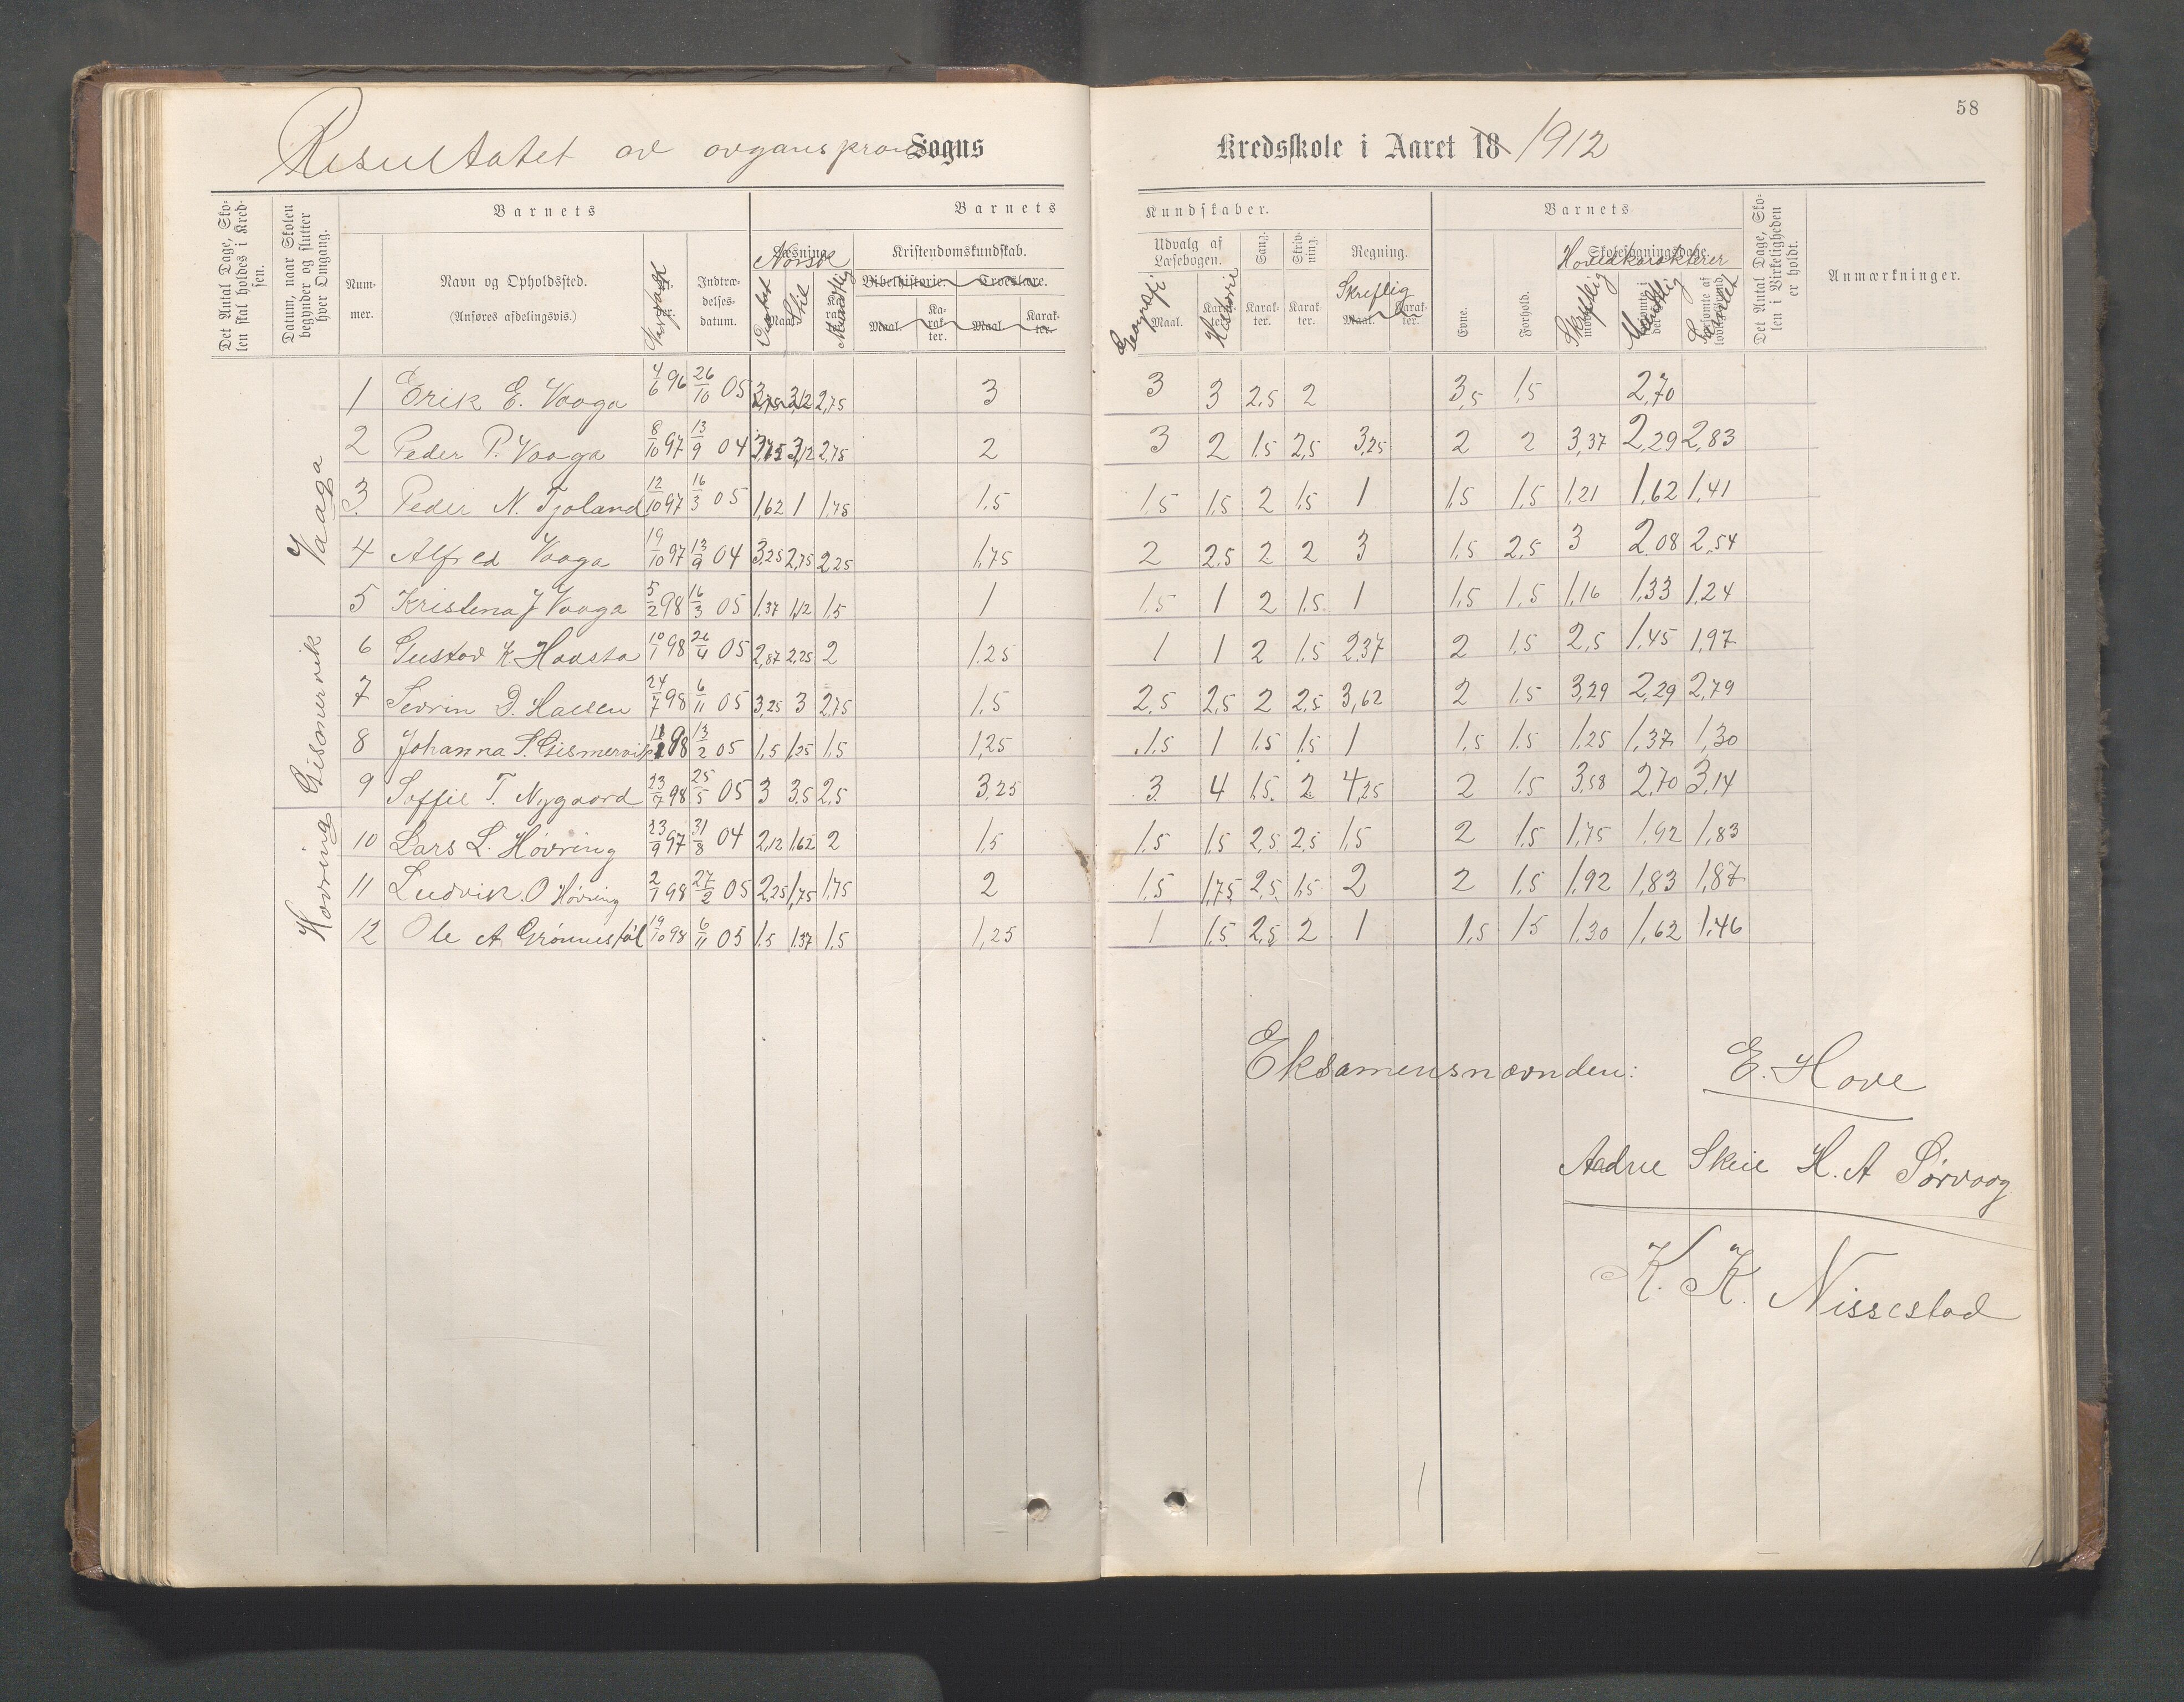 58
Resultatet av avgansprøven Sogns Kredsskole i Aaret 18 1912
Det Antal Dage, Skolen skal holdes i Kredsen.
Datum, naar Skolen begynder og slutter hver Omgang.
Barnets
Barnets
Kundskaber.
Barnets
Det Antal Dage, Skolen i Virkeligheden er holdt.
Anmærkninger.
Nummer.
Navn og Opholdssted.
(Anføres afdelingsvis.)
Indtrædelsesdatum.
Læsning.
Norsk
Diktat
Stil
Mundtlig
Kristendomskundskab.
Bibelhistorie. Troeslære.
Maal. Karakter. Maal. Karakter.
Udvalg af Læsebogen.
Geografi Maal.
Historie Karakter.
Sang. Karakter.
Skrivning. Karakter.
Regning.
Skriftlig
Maal. Karakter.
Evne.
Forhold.
Skolesøgningsdage.
Hovedkarakterer
Skriftlig
Mundtlig
Samlet
Vaaga
1 Erik E. Vaaga 4/6 96 26/10 05 2,75 3 3 2,5 2 3,5 1,5 2,70
2 Peder P. Vaaga 8/10 97 13/9 04 2,75 2 3 2 1,5 2,5 3,25 2 2 3,37 2,29 2,83
3 Peder N. Tjoland 12/10 97 16/3 05 1,62 1 1,75 1,5 1,5 1,5 2 1,5 1 1,5 1,5 1,21 1,62 1,41
4 Alfred Vaaga 19/10 97 13/9 04 3,25 2,75 2,25 1,75 2 2,5 2 2 3 1,5 2,5 3 2,08 2,54
5 Kristena J Vaaga 5/2 98 16/3 05 1,37 1,12 1,5 1 1,5 1 2 1,5 1 1,5 1,5 1,16 1,33 1,24
Gismervik
6 Gustav K. Haasta 10/1 98 26/4 05 2,87 2,25 2 1,25 1 1 2 1,5 2,37 2 1,5 2,5 1,45 1,97
7 Sevrin D. Hallen 24/7 98 6/11 05 3,25 3 2,75 1,5 2,5 2,5 2 2,5 3,62 2 1,5 3,29 2,29 2,79
8 Johanna S. Gismervik 98 13/2 05 1,5 1,25 1,5 1,25 1,5 1 1,5 1,5 1 1,5 1,5 1,25 1,37 1,30
9 Soffie T. Nygaard 23/7 98 25/5 05 3 3,5 2,5 3,25 3 4 1,5 2 4,25 2 1,5 3,58 2,70 3,14
Høvring
10 Lars L. Høvring 23/9 97 31/8 04 2,12 1,62 2 1,5 1,5 1,5 2,5 2,5 1,5 2 1,5 1,75 1,92 1,83
11 Ludvik. O Høvring 2/1 98 27/2 05 2,25 1,75 1,75 2 1,5 1,75 2,5 1,5 2 2 1,5 1,92 1,83 1,87
12 Ole A. Grønnestøl 19/10 98 6/11 05 1,5 1,37 1,5 1,25 1 1,5 2,5 2 1 1,5 1,5 1,30 1,62 1,46
Eksamensnævnden: E. Hove
Skeie H. A Sørvaag
K. K. Nissestad